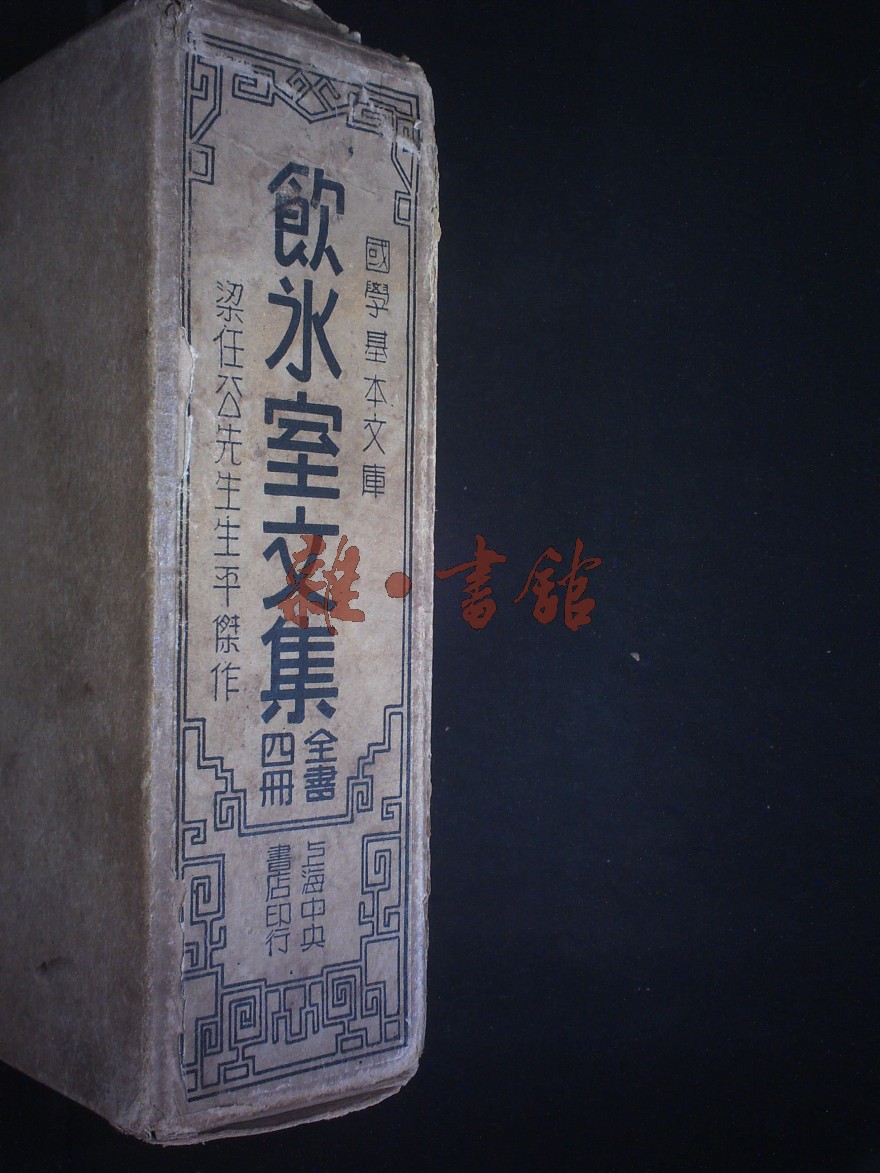 國學基本文庫
飲氷室文集
全書
四冊
梁任公先生生平傑作
上海中央
書店印行
雜·書館